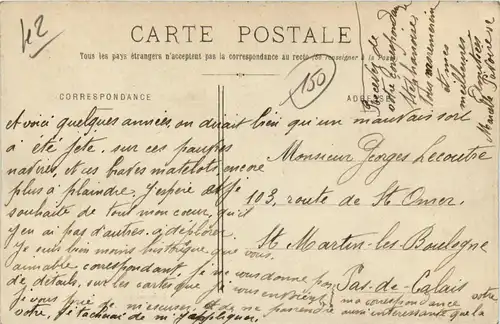 42
CARTE POSTALE
Tous les pays étrangers n'acceptent pas la correspondance au recto (se renseigner à la Poste)
150
CORRESPONDANCE
ADRESSE
Recevez de
votre correspondante
Stéphanoise
meilleures
Marcelle
Et voici quelques années, on dirait bien qu'un mauvais sort
a été jeté sur ces pauvres
navires, et ces braves matelots, encore
plus à plaindre. J'espère et je
souhaite de tout mon cœur, qu'il
y en ai pas d'autres à déplorer
Je suis bien moins historique que vous.
aimable correspondant. Je ne vous donne pas
de détails, sur les cartes que je vous envoie
je vous prie de m'excuser et de me prendre
votre, je tacherai de m'appliquer.
ma correspondance
aussi intéressante que la
votre
Monsieur Georges Lecoutre
103, route de St Omer.
St Martin-les-Boulogne
Pas-de-Calais